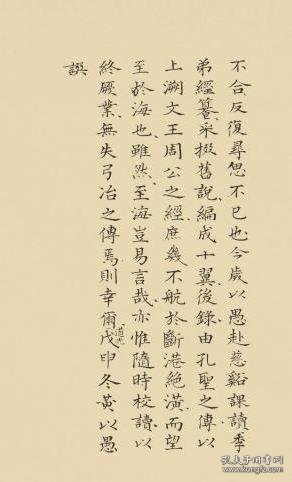 不合反復尋愳不已也今歲以愚赴慈谿課讀季
弟經纂采掇舊說編成十翼後錄由孔聖之傳以
上溯文王周公之經庶幾不航於斷港絕潢而望
至於海也雖然至海豈易言哉亦惟隨時校讀以
終厥業無失弓冶之傳焉則幸爾道光戊申冬黃以愚
譔
孔夫子旧书网